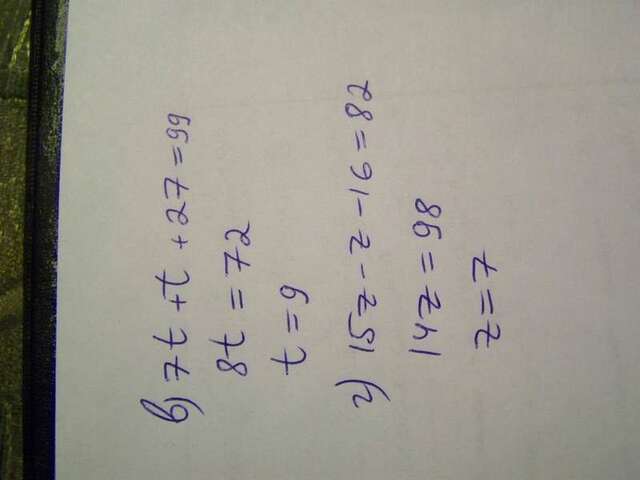 в) 7t + t + 27 = 99
8t = 72
t = 9
г) 15z - z - 16 = 82
14z = 98
z = 7